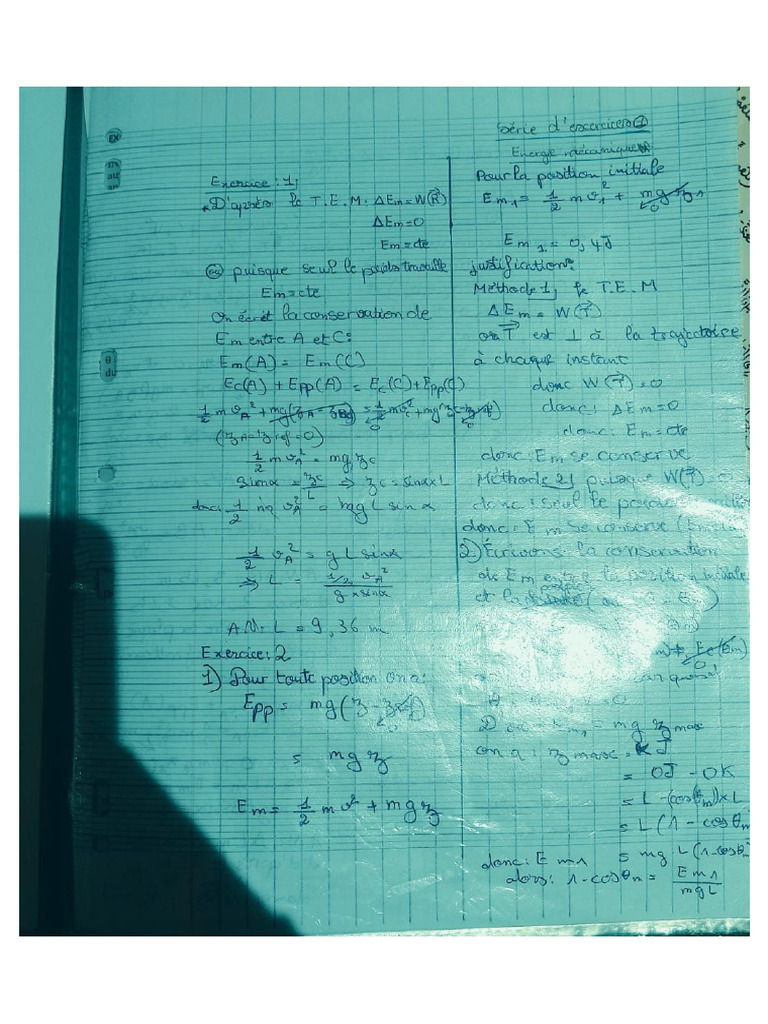 Série d'exercices ①
Energie mécanique
Exercice : 1,
* D'après le T.E.M. ΔEm = W(R)
ΔEm = 0
Em = cte
ou puisque seul le poids travaille
Em = cte
On écrit la conservation de
Em entre A et C :
Em(A) = Em(C)
Ec(A) + Epp(A) = Ec(C) + Epp(C)
(zA = z ref = 0)
1/2 m vA² = mg zc
sin α = zc/L ⇒ zc = sin α x L
donc 1/2 m vA² = mg L sin α
1/2 vA² = g L sin α
⇒ L = (1/2 vA²)/(g x sin α)
A.N: L = 9,36 m
Exercice : 2
1) Pour toute position on a :
Epp = mg(z -
= mg z
Em = 1/2 m v² + mg z
Pour la position initiale
Em1 = 1/2 m v1² + mg z1
Em1 = 0,4J
justification :
Méthode 1, le T.E.M
ΔEm = W(T)
or T est ⊥ à la trajectoire
à chaque instant
donc W(T) = 0
donc : ΔEm = 0
donc : Em = cte
donc : Em se conserve
Méthode 2, puisque W(T) =
donc : seul le
donc : Em se conserve
2) Écrivons la conservation
de Em entre la position initiale
et la
= mg z max
on a : z max = KJ
= OJ - OK
= L - (cos θm) x L
= L (1 - cos θm
donc : Em1 = mg L (1 - cos θm
alors : 1 - cos θm = Em1/mgL